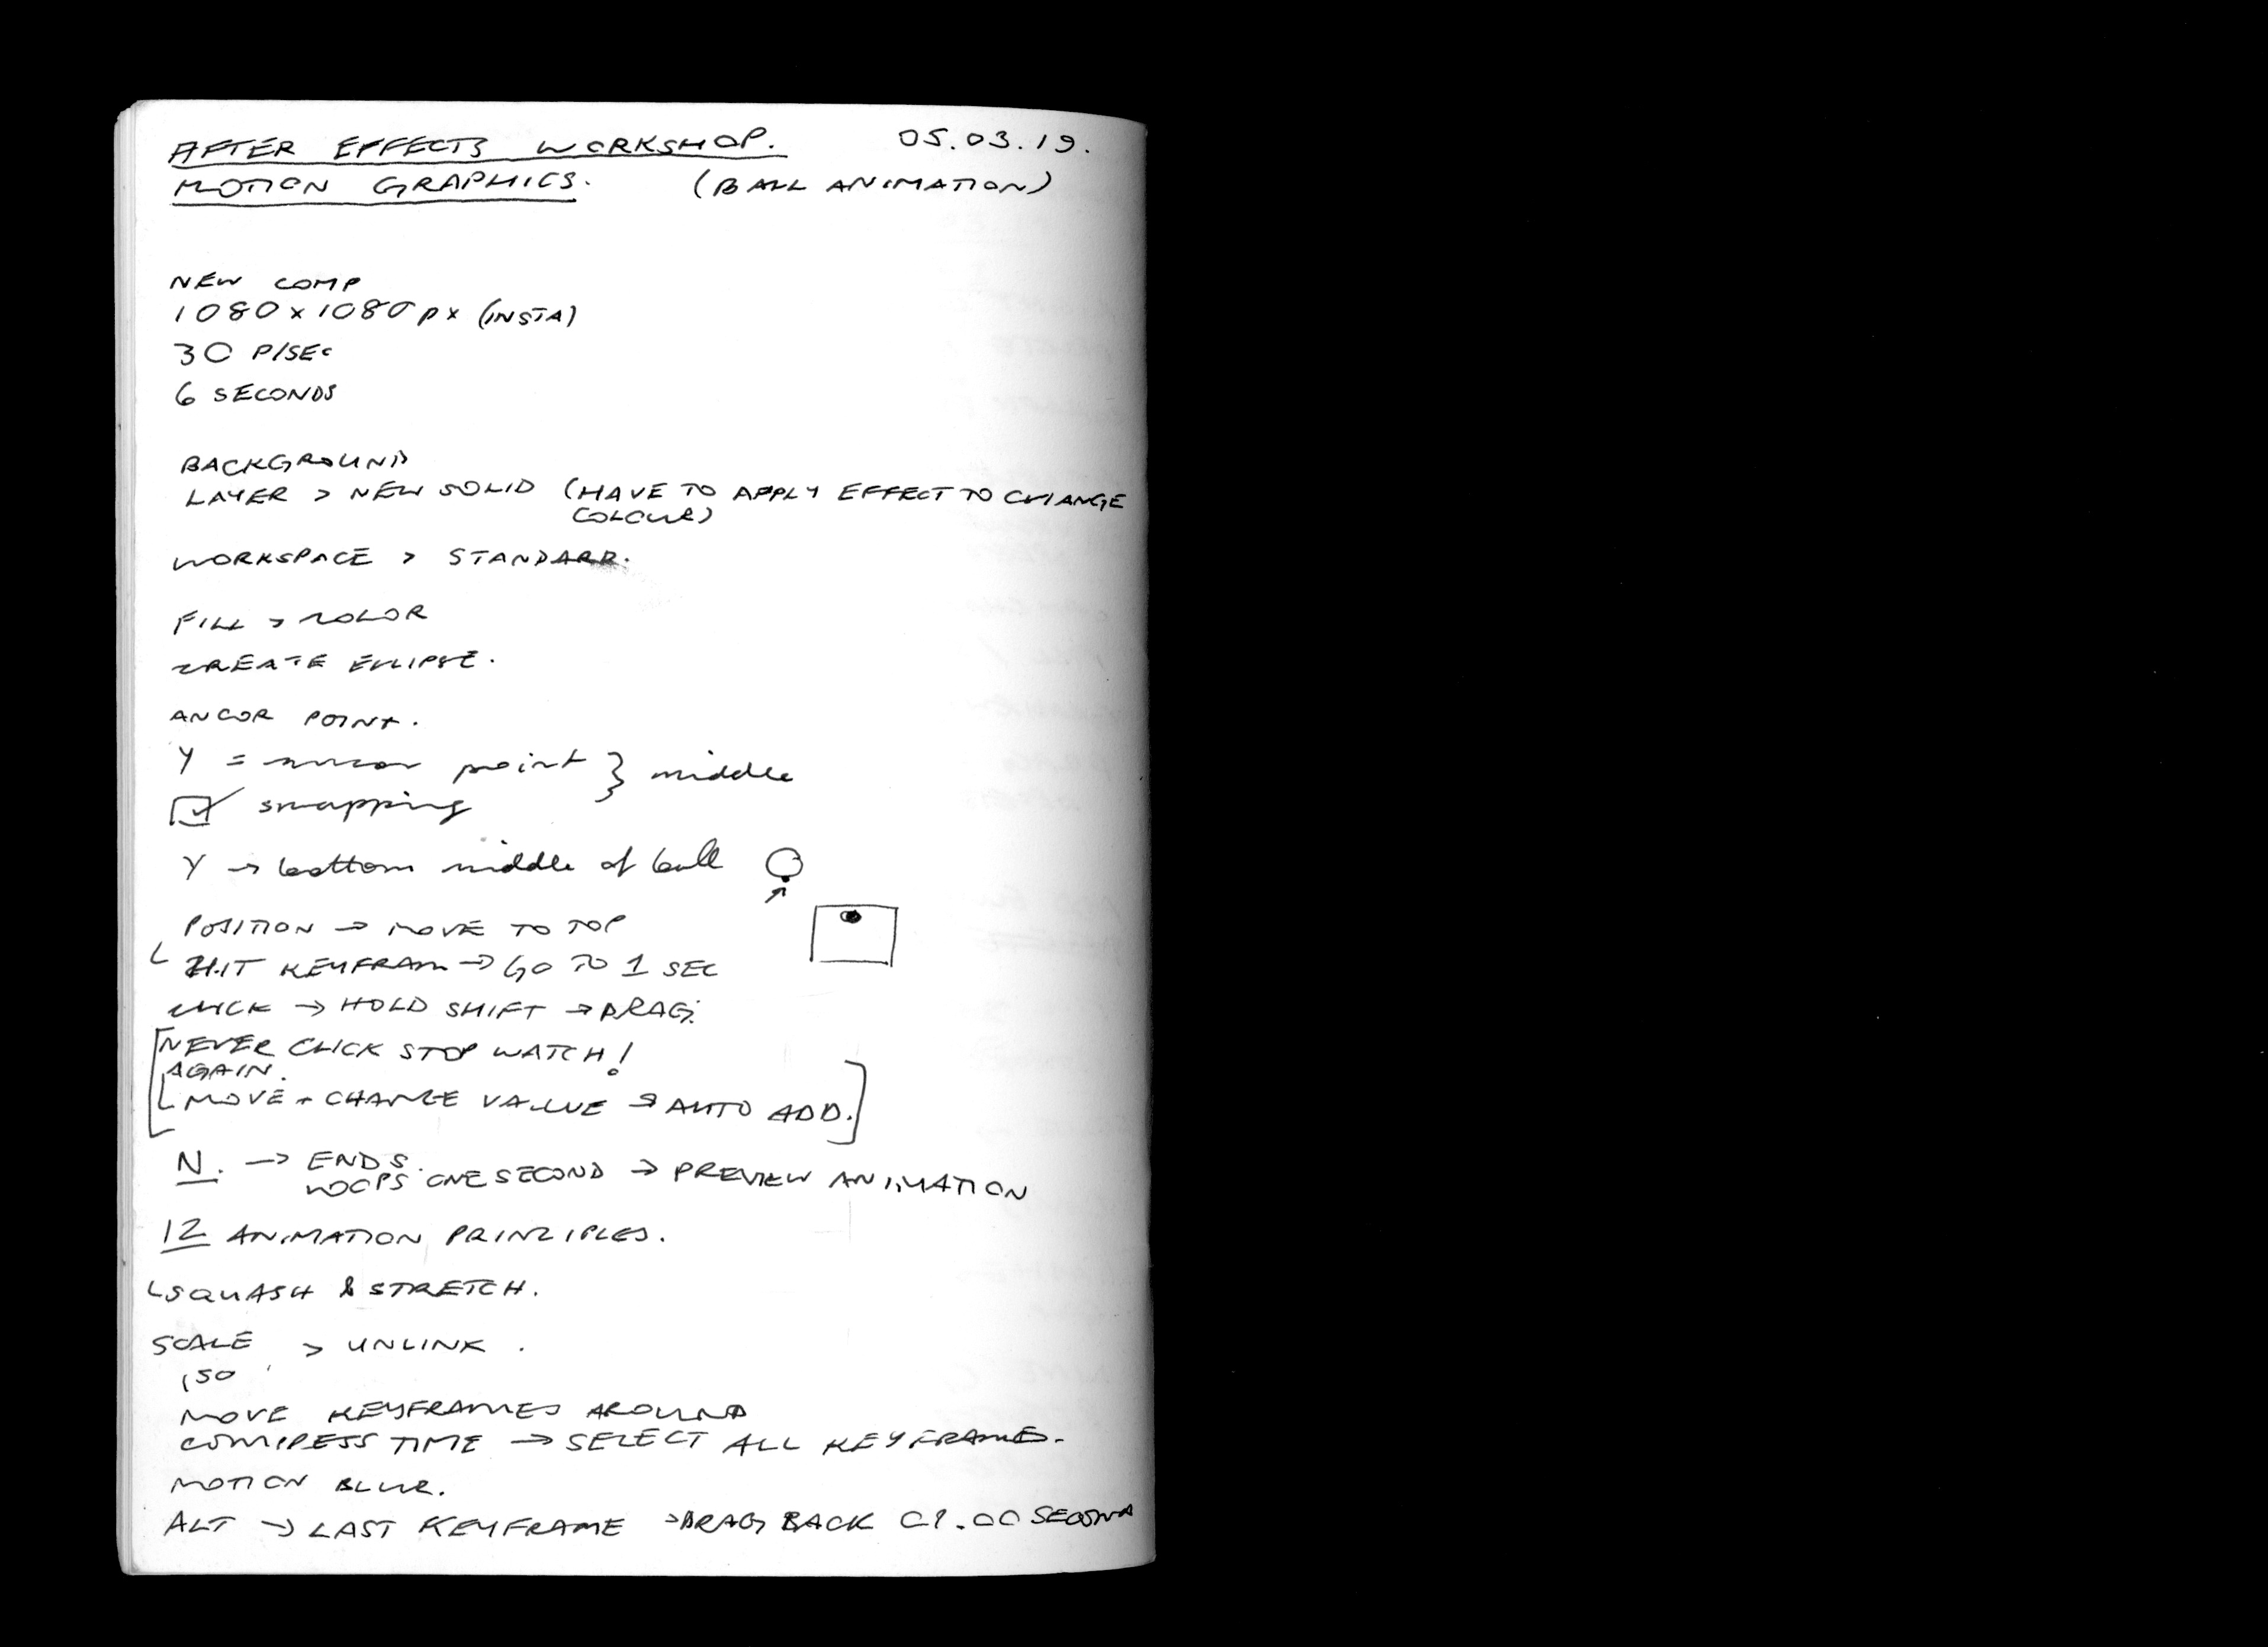 AFTER EFFECTS WORKSHOP. 05.03.19.
MOTION GRAPHICS. (BALL ANIMATION)
NEW COMP
1080x1080px (INSTA)
30 P/SEC
6 SECONDS
BACKGROUND
LAYER > NEW SOLID (HAVE TO APPLY EFFECT TO CHANGE
COLOUR)
WORKSPACE > STANDARD.
FILL > COLOR
CREATE ELLIPSE.
ANCOR POINT.
Y = ancor point } middle
snapping
Y → bottom middle of ball
POSITION → MOVE TO TOP
HIT KEYFRAM → GO TO 1 SEC
CLICK → HOLD SHIFT → DRAG.
NEVER CLICK STOP WATCH!
AGAIN.
MOVE + CHANGE VALUE → AUTO ADD.
N. → ENDS.
LOOPS ONE SECOND → PREVIEW ANIMATION
12 ANIMATION PRINCIPLES.
SQUASH & STRETCH.
SCALE > UNLINK.
150
MOVE KEYFRAMES AROUND
COMPRESS TIME → SELECT ALL KEYFRAMES.
MOTION BLUR.
ALT → LAST KEYFRAME → DRAG BACK 01.00 SECOND